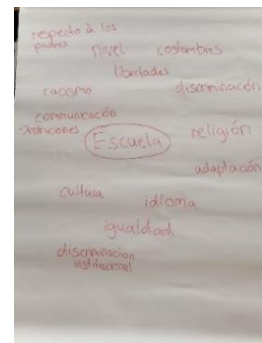 respecto a los
padres
nivel
costumbres
libertades
racismo
discriminación
comunicación
Instrucciones
Escuela
religión
adaptación
cultura
idioma
igualdad
discriminacion
institucional